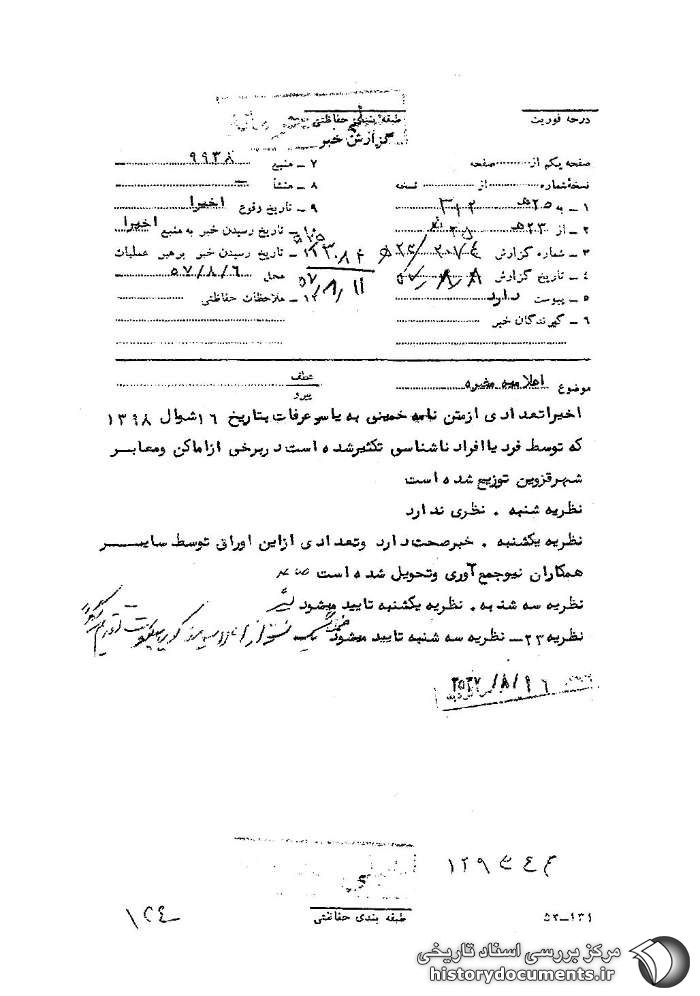 درجه فوریت
طبقه بندی حفاظتی
گزارش خبر
صفحه یکم از ........ صفحه
نسخهٔ شماره ........ از ........ نسخه
۱ ـ به ۲۵ هـ ۳۱۲
۲ ـ از ۲۳ هـ
۳ ـ شماره گزارش
۴ ـ تاریخ گزارش ۵۷/۸/۸
۵ ـ پیوست دارد
۶ ـ گیرندگان خبر
۷ ـ منبع ۹۹۳۸
۸ ـ منشأ ـ
۹ ـ تاریخ وقوع اخیرا
۱۰ ـ تاریخ رسیدن خبر به منبع اخیرا
تاریخ رسیدن خبر برهبر عملیات
محل ۵۷/۸/۶
۵۷/۸/۱۱
۱۲ ـ ملاحظات حفاظتی
موضوع اعلامیه مضره
عطف
پیرو
اخیرا تعدادی ازمتن نامه خمینی به یاسرعرفات بتاریخ ۱۶ شوال ۱۳۹۸
که توسط فرد یا افراد ناشناسی تکثیرشده است دربرخی ازاماکن ومعابر
شهرقزوین توزیع شده است
نظریه شنبه . نظری ندارد
نظریه یکشنبه . خبرصحت دارد وتعدادی ازاین اوراق توسط سایر
همکاران نیوجمع آوری وتحویل شده است
نظریه سه شنبه . نظریه یکشنبه تایید میشود
نظریه ۲۳ـ نظریه سه شنبه تایید میشود
۱۲۹۳۴۳
۱۲۴
طبقه بندی حفاظتی
۵۲ـ۱۳۱
مرکز بررسی اسناد تاریخی
historydocuments.ir